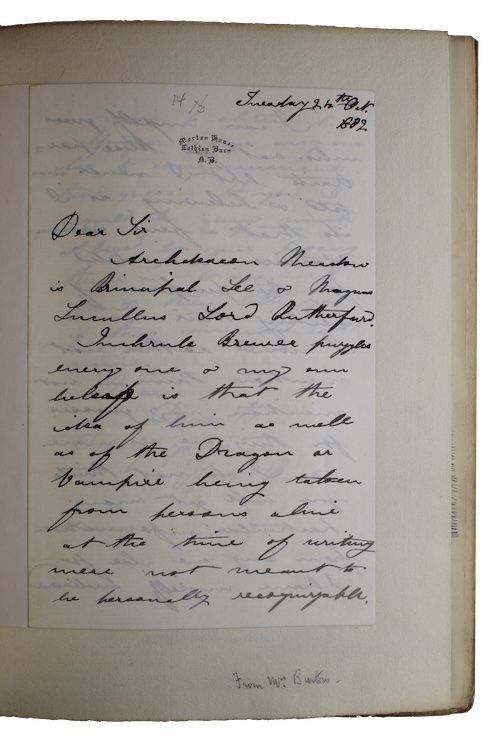 14
Tuesday 24th Oct.
1882
Morton House
Lothian Burn
N.B.
Dear Sir
Archdeacon Meadow
is Principal Lee & Magnus
Lucullus Lord Rutherfurd.
Inchrule Brewer puzzles
every one & my own
belief is that the
idea of him as well
as of the Dragon or
Vampire being taken
from persons alive
at the time of writing
were not meant to
be personally recognizable.
From Mrs Burton.